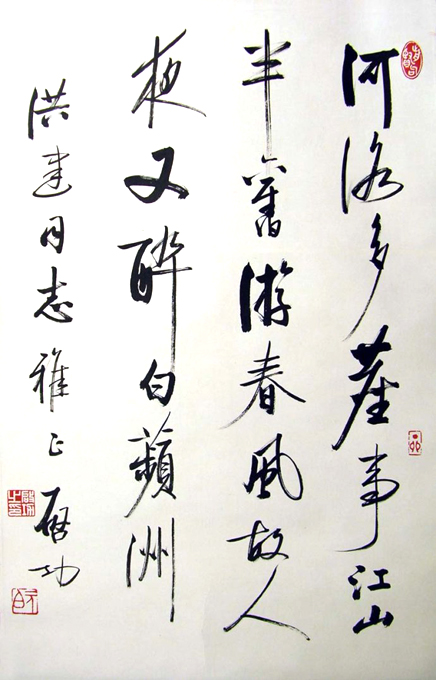 河洛多塵事江山
半舊游春風故人
夜又醉白蘋洲
洪建同志雅正
启功